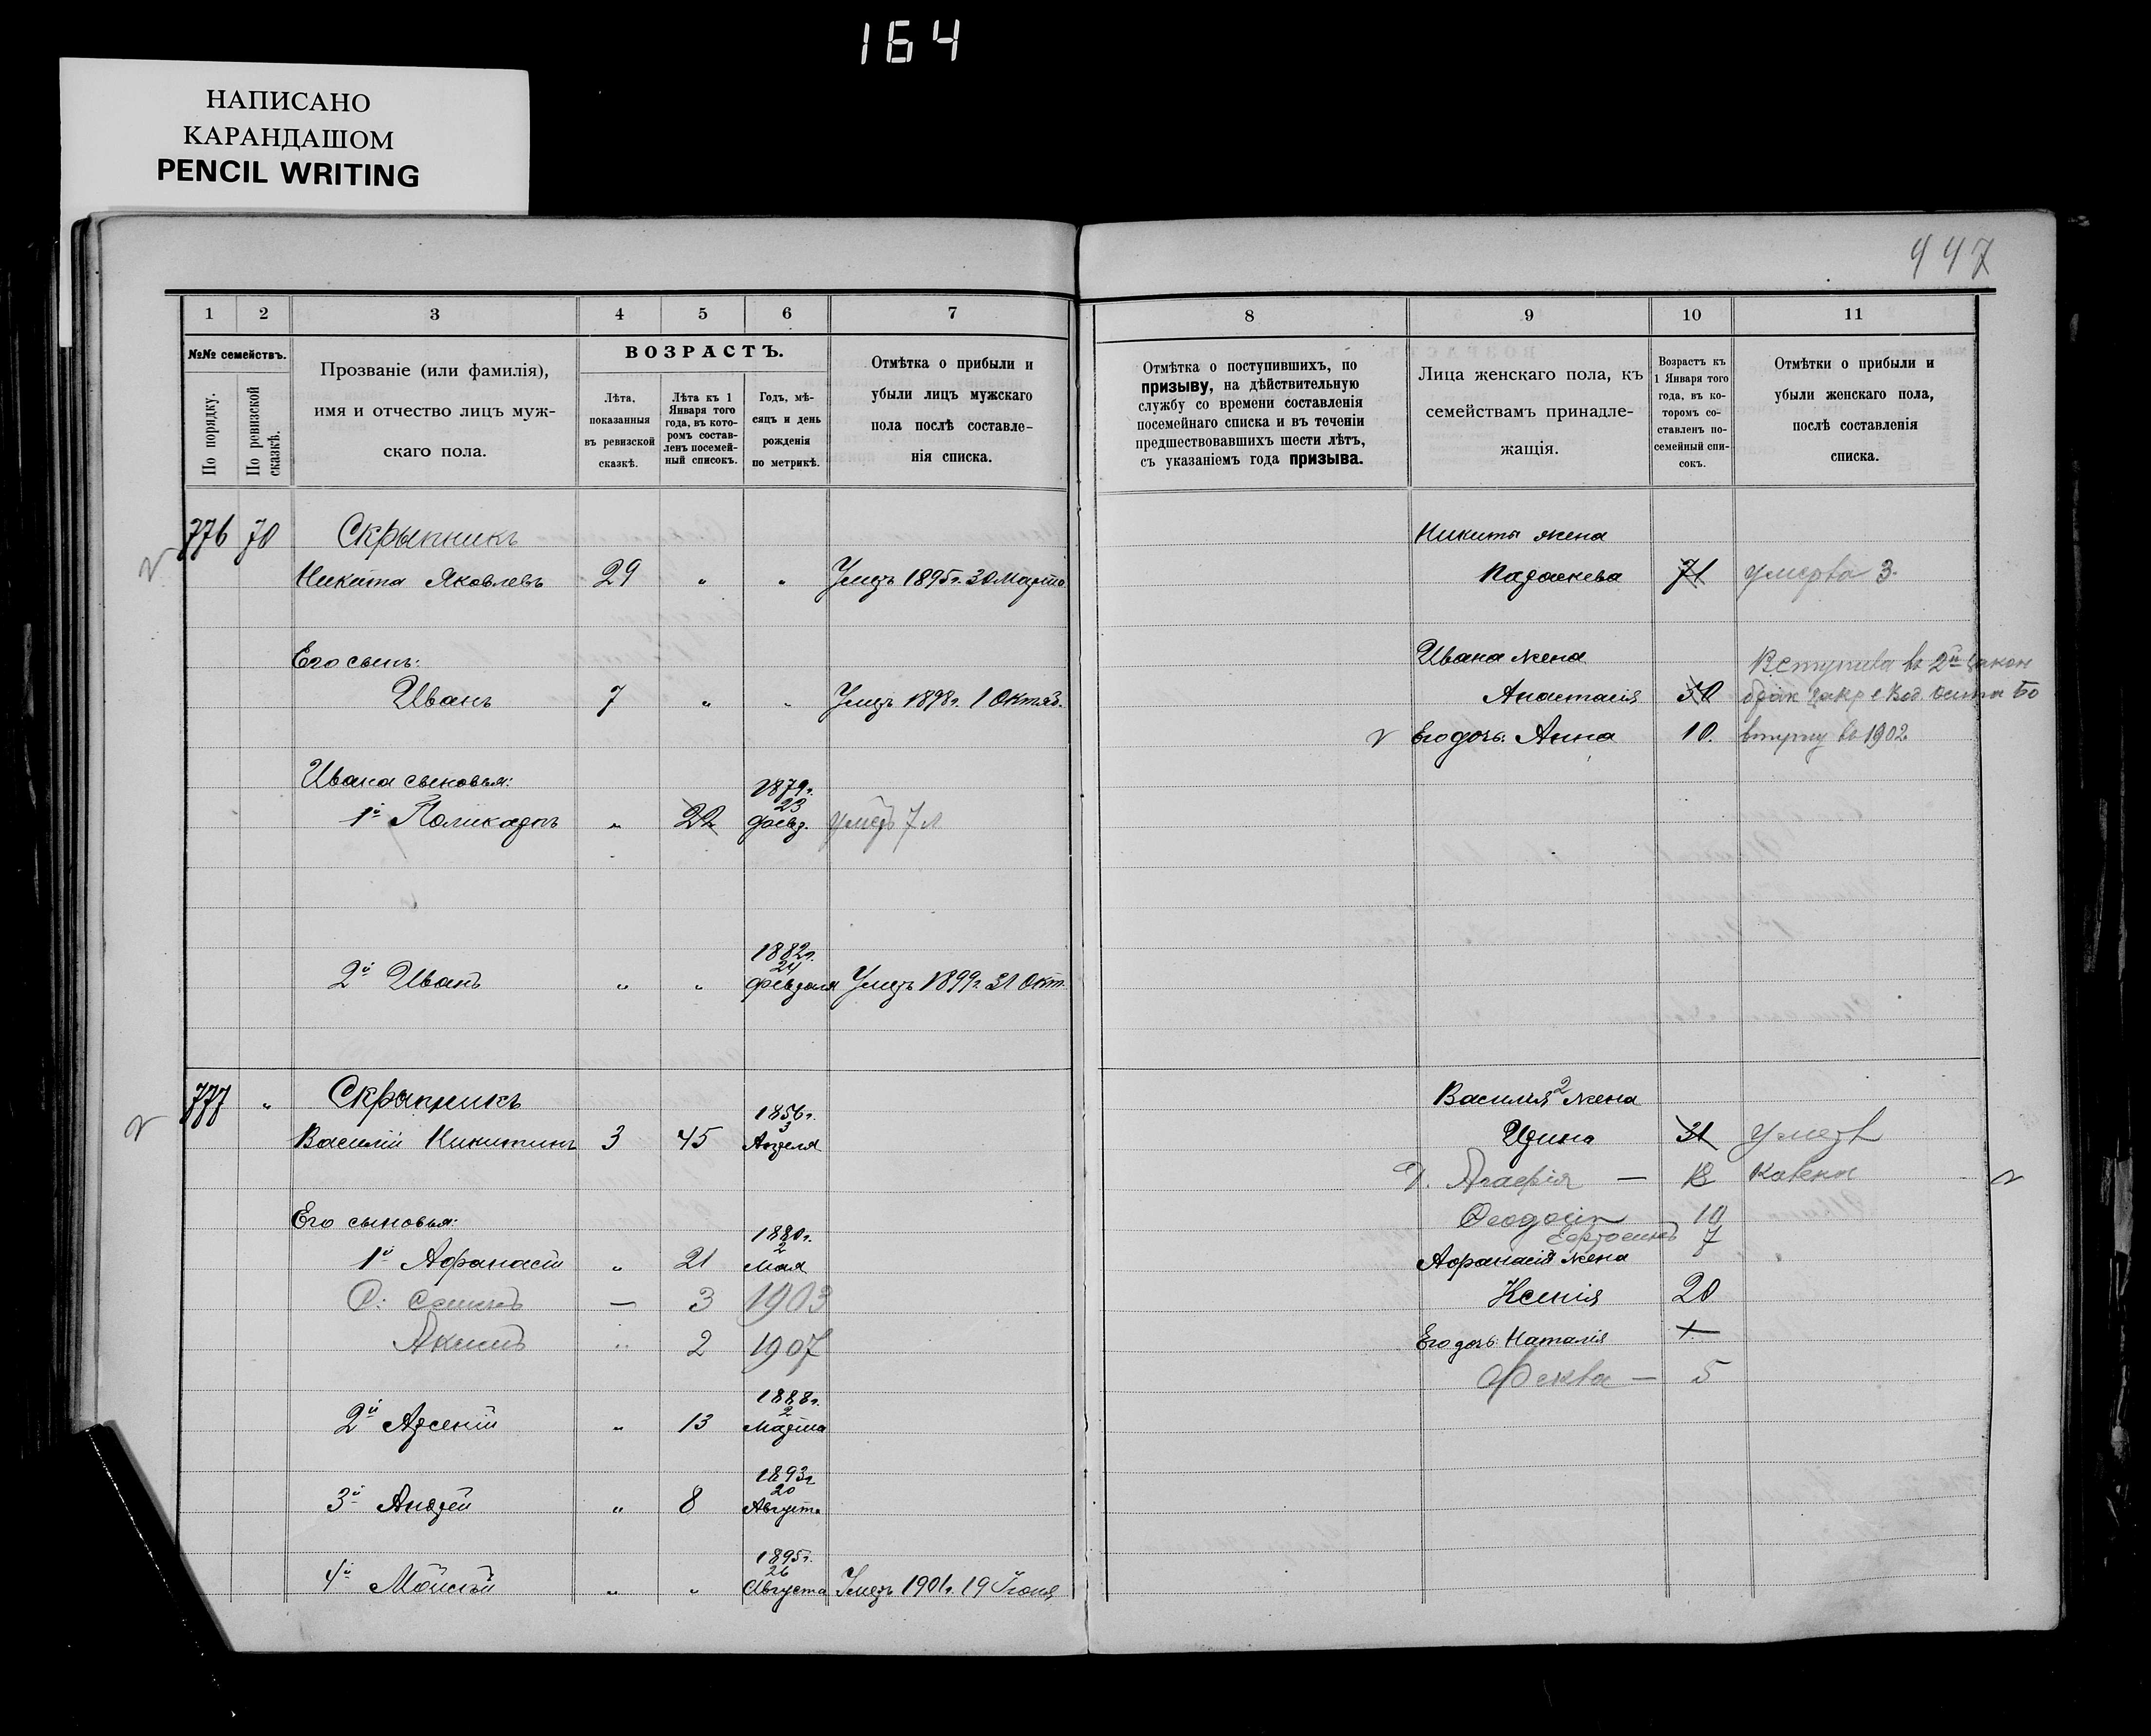 164
НАПИСАНО
КАРАНДАШОМ
PENCIL WRITING
447
1 2 3 4 5 6 7
№№ семействъ.
По порядку.
По ревизской сказкѣ.
Прозваніе (или фамилія),
имя и отчество лицъ муж-
скаго пола.
ВОЗРАСТЪ.
Лѣта,
показанныя
въ ревизской
сказкѣ.
Лѣта къ 1
Января того
года, въ кото-
ромъ состав-
ленъ посемей-
ный списокъ.
Годъ, мѣ-
сяцъ и день
рожденія
по метрикѣ.
Отмѣтка о прибыли и
убыли лицъ мужскаго
пола послѣ составле-
нія списка.
776 70 Скрыпникъ
Никита Яковлевъ 29 " " Умеръ 1895г. 30 Марта
Его сынъ:
Иванъ 7 " " Умеръ 1898г. 1 Октяб.
Ивана сыновья:
1й Поликарпъ " 22 1879г. 23 февр. умеръ 7 л
2й Иванъ " " 1882г. 24 февраля Умеръ 1899г. 31 Окт.
777 " Скрыпникъ
Василій Никитинъ 3 45 1856г. 3 Апреля
Его сыновья:
1й Афанасій " 21 1880г. 2 Мая
С: Семенъ — 3 1903
Акимъ " 2 1907
2й Арсеній " 13 1888г. 2 Марта
3й Андрей " 8 1893г. 20 Августа
4й Моисей " " 1895г. 26 Августа Умеръ 1901г. 19 Іюня
8 9 10 11
Отмѣтка о поступившихъ, по
призыву, на дѣйствительную
службу со времени составленія
посемейнаго списка и въ теченіи
предшествовавшихъ шести лѣтъ,
съ указаніемъ года призыва.
Лица женскаго пола, къ
семействамъ принадле-
жащія.
Возрастъ къ
1 Января того
года, въ ко-
торомъ со-
ставленъ по-
семейный спи-
сокъ.
Отмѣтки о прибыли и
убыли женскаго пола,
послѣ составленія
списка.
Никиты жена
71 умерла 3.
Ивана жена
Вступила въ 2й закон
Анастасія 50 брак
Его дочь: Анна 10. въ 1902
Василія 2 жена
Ирина 31 Умер
Д. Агафія — 18
Феодосія 10
7
Афанасія жена
Ксенія 20
Его дочь: Наталія
Фекла — 5